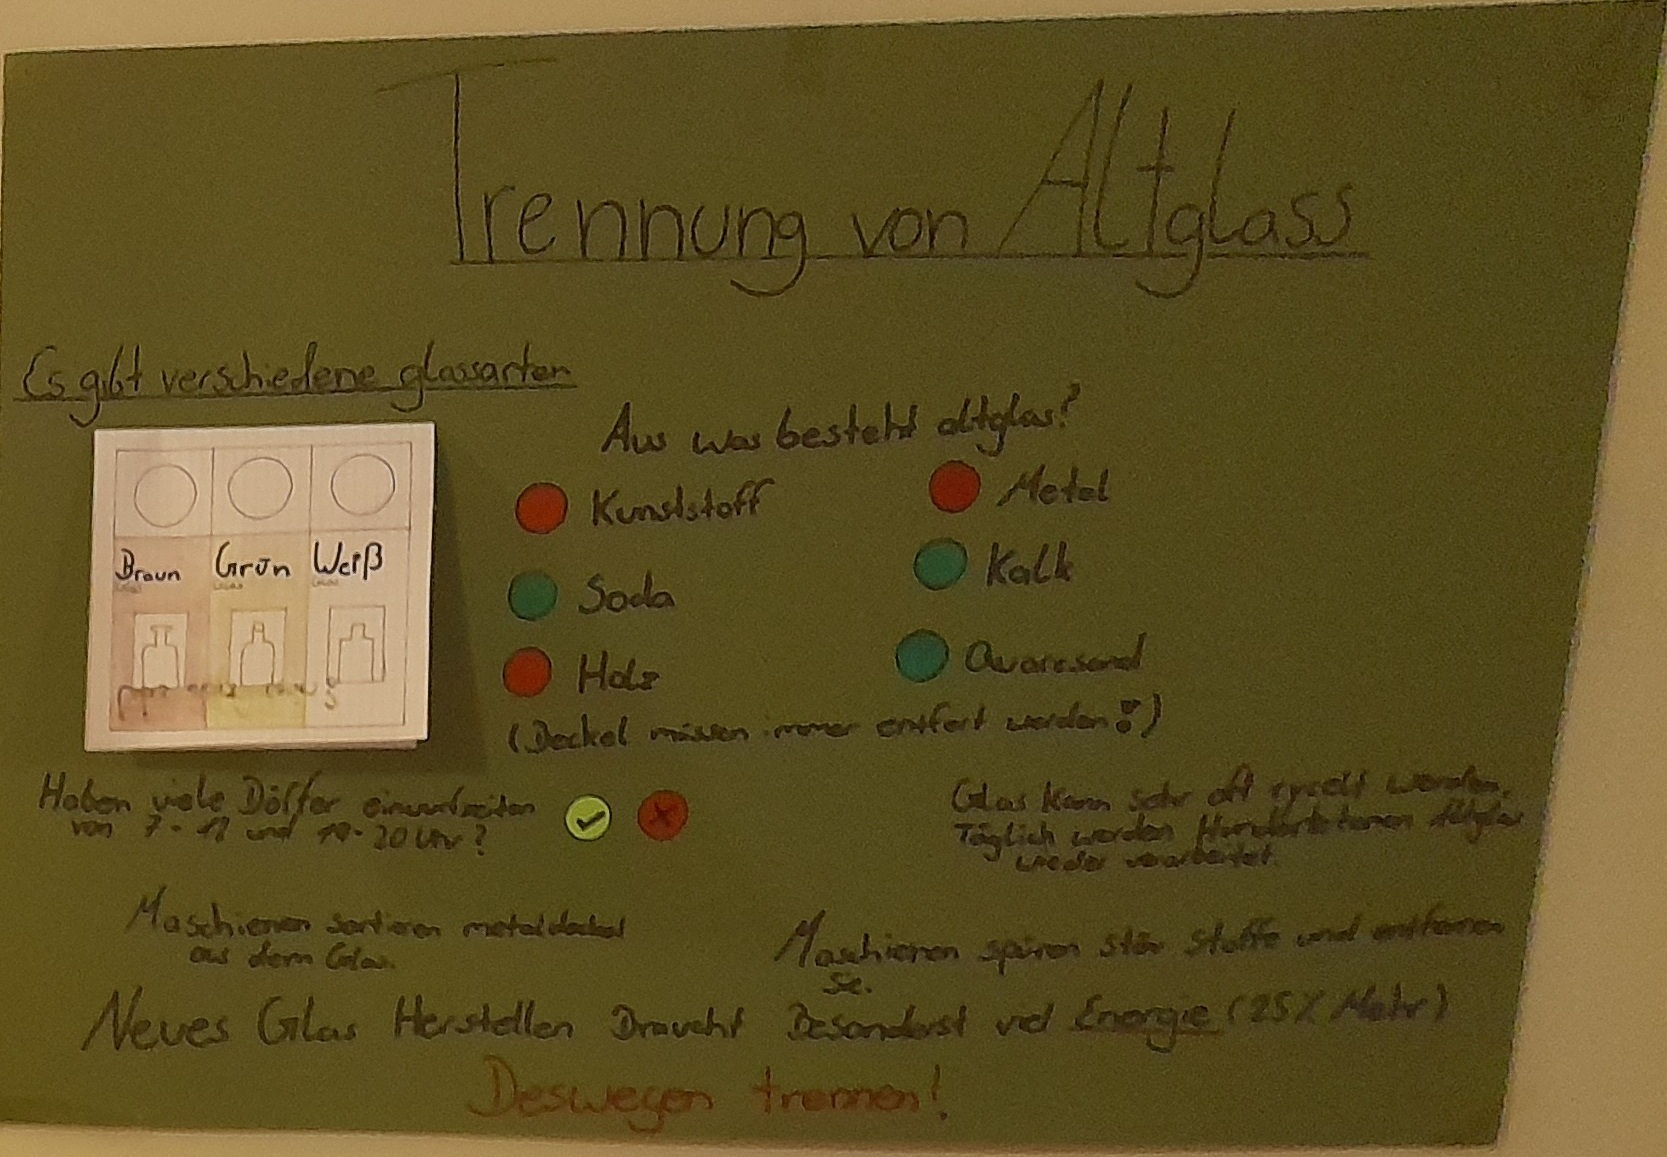 Trennung von Altglass
Es gibt verschiedene glassarten
Braun Grün Weiß
Glas Glas Glas
Aus was besteht altglas?
Kunststoff
Metal
Soda
Kalk
Holz
Quarzsand
(Deckel müssen immer entfert werden!)
Haben viele Dörfer einwurfzeiten
von 7-12 und 14-20 Uhr?
Glas kann sehr oft werden.
Täglich werden Altglas
wieder verarbeitet.
Maschienen sortieren metaldeckel
aus dem Glas.
Maschienen spüren stör stoffe und entfernen
Sie.
Neues Glas Herstellen Braucht Besonderst viel Energie (25% Mehr)
Deswegen trennen!